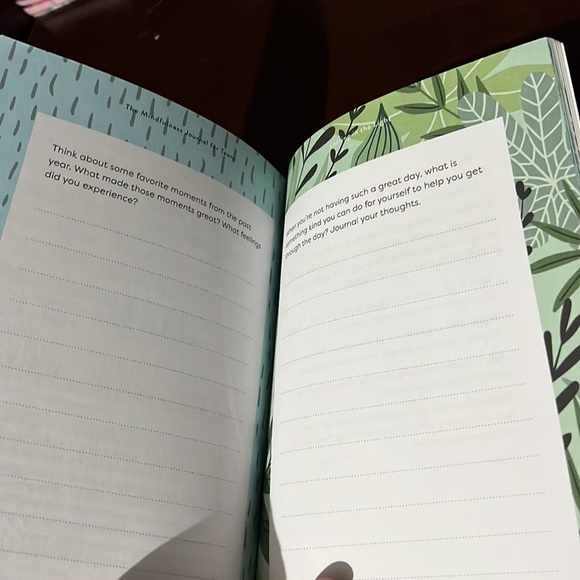 The Mindfulness Journal for Teens
Think about some favorite moments from the past
year. What made those moments great? What feelings
did you experience?
the Light
When you're not having such a great day, what is
something kind you can do for yourself to help you get
through the day? Journal your thoughts.